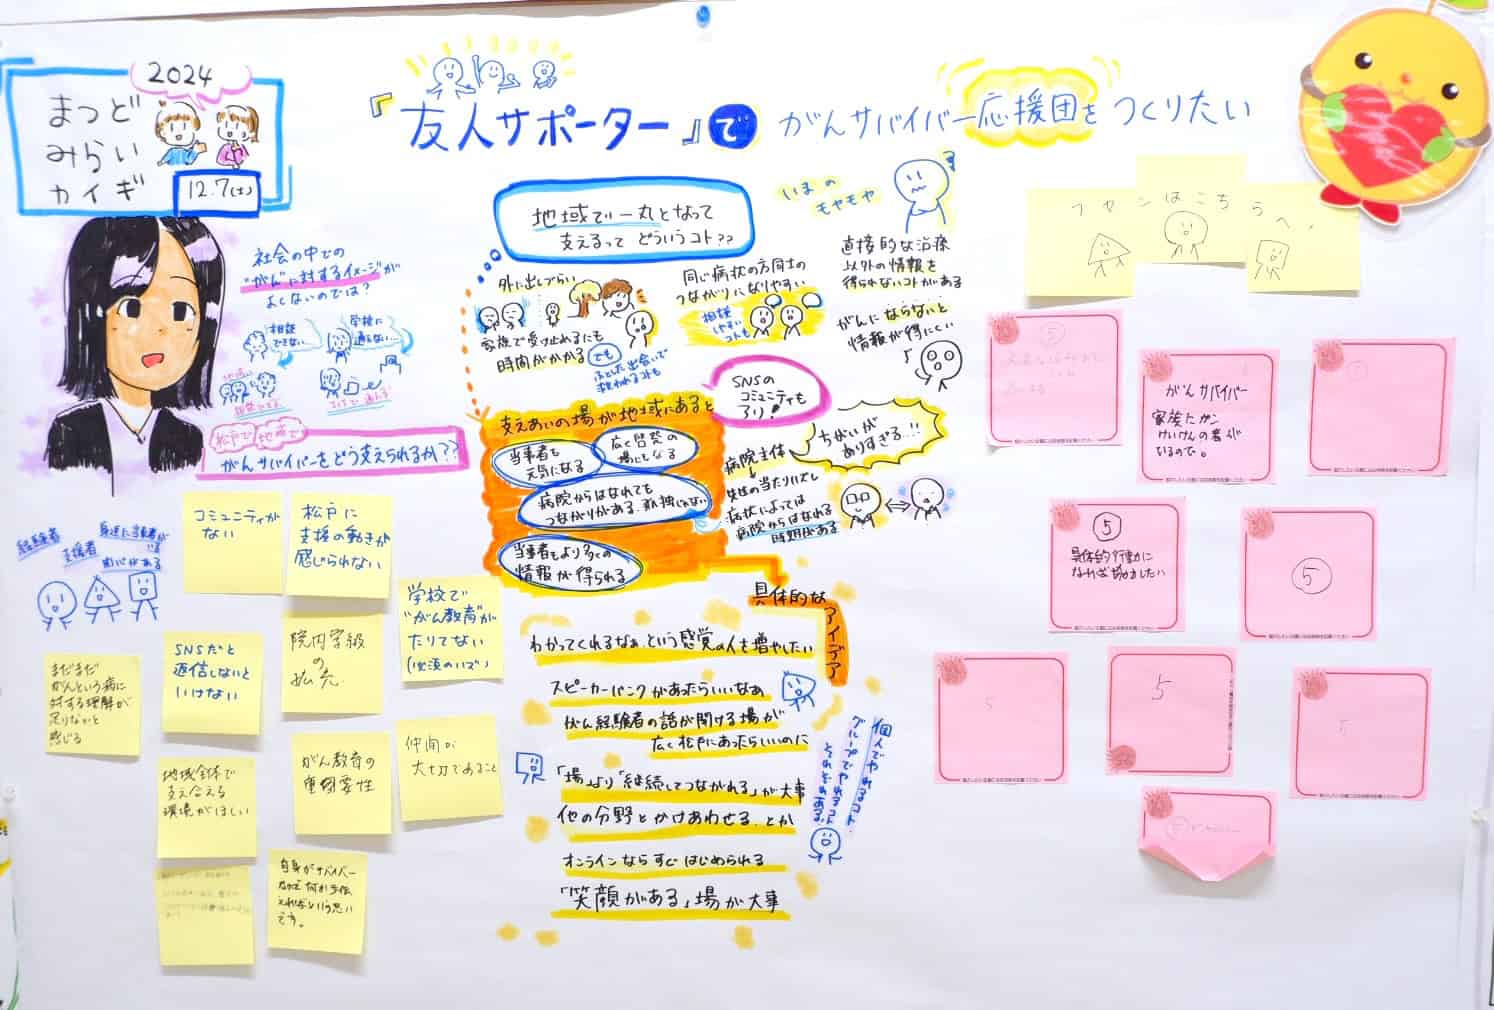 2024
まつど
みらい
カイギ
12.7(土)
『友人サポーター』で がんサバイバー応援団をつくりたい
社会の中での
"がん"に対するイメージが
よくないのでは？
相談
できない
学校に
通えない…
松戸で 地域で
がんサバイバーをどう支えられるか??
経験者
支援者
身近に当事者が
いる
関心がある
コミュニティが
ない
松戸に
支援の動きが
感じられない
学校で
"がん教育"が
たりてない
(必須のハズ)
SNSだと
返信しないと
いけない
院内学級
の
拡充
まだまだ
がんという病に
対する理解が
足りないと
感じる
地域全体で
支え合える
環境がほしい
がん教育の
重要性
仲間が
大切であること
自身がサバイバー
なので何か手伝
えればという思い
です。
地域で一丸となって
支えるって どういうコト??
外に出しづらい
家族で受け止めれるにも
時間がかかる
でも
ふとした出会いで
救われるコトも
同じ病状の方同士の
つながりになりやすい
相談
しやすい
コトも
いまの
モヤモヤ
直接的な治療
以外の情報を
得られないコトがある
がんにならないと
情報が得にくい
SNSの
コミュニティも
アリ！
支えあいの場が地域にあると
当事者も
元気になる
広く啓発の
場にもなる
病院からはなれても
つながりがある.孤独じゃない
当事者もより多くの
情報が得られる
ちがいが
ありすぎる..!!
病院主体
先生の当たりハズレ
病状によっては
病院からはなれる
時期がある
具体的な
アイデア
わかってくれるなぁという感覚の人を増やしたい
スピーカーバンクがあったらいいなぁ
がん経験者の話が聞ける場が
広く松戸にあったらいいのに
「場」より「継続してつながれる」が大事
他の分野とかけあわせる.とか
オンラインならすぐはじめられる
「笑顔がある」場が大事
個人でやれるコト.
グループでやれるコト
それぞれある.
ファンはこちらへ！
5
がんサバイバー
家族にガン
けいけんの者が
いるので。
5
具体的行動に
なれば協力したい
5
5
5
5